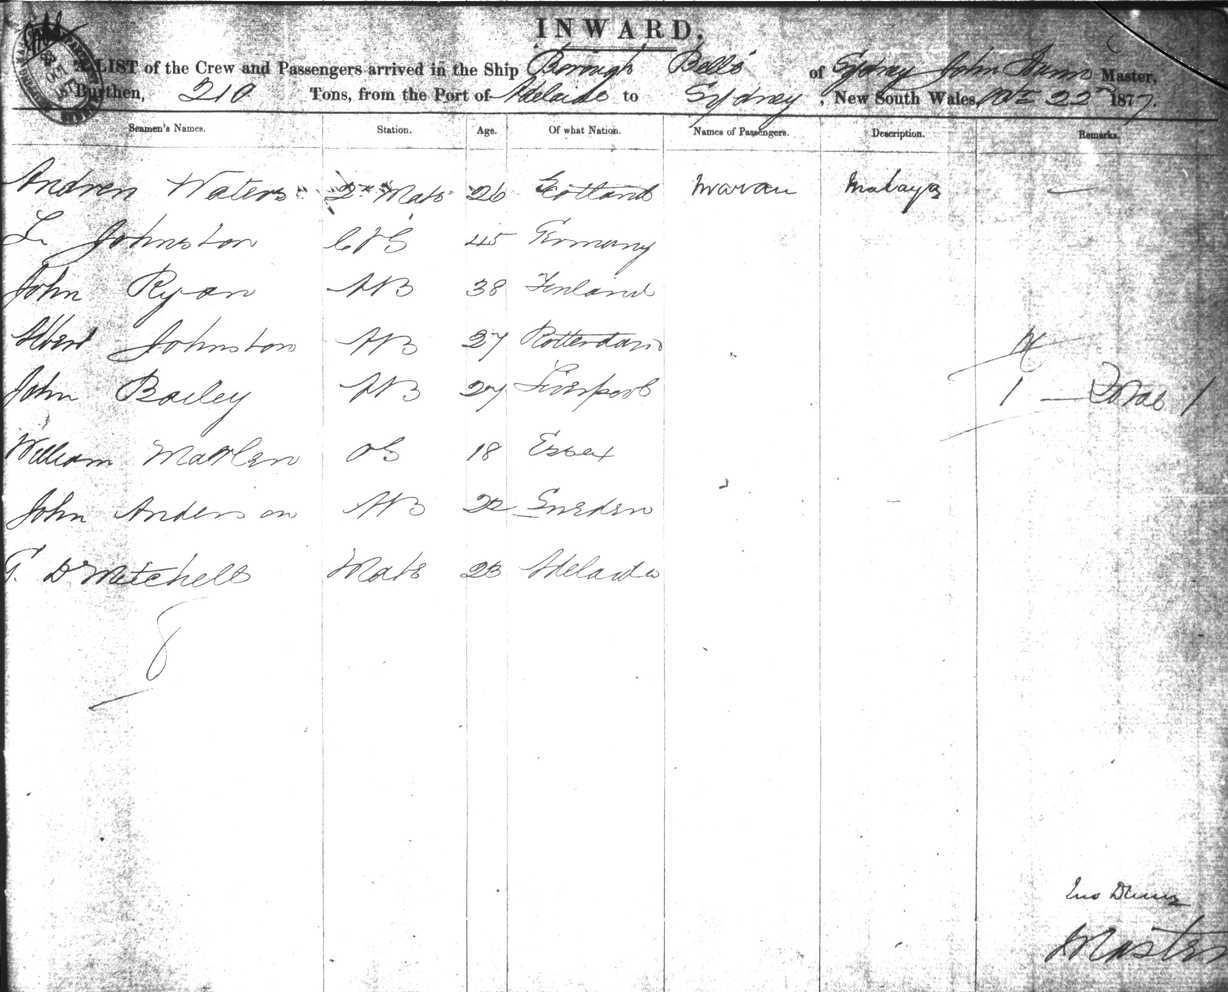 INWARD.
A LIST of the Crew and Passengers arrived in the Ship Borough Belle of Sydney John Master,
Burthen, 210 Tons, from the Port of Adelaide to Sydney, New South Wales, 22nd 1877.
Seamen's Names. Station. Age. Of what Nation. Names of Passengers. Description. Remarks.
Andrew Waters 2nd Mate 26 —
Johnston C & S 45 Germany
John Ryan AB 38 Finland
Albert Johnston AB 27 Rotterdam
John Bailey AB 27 Liverpool
1 — Total 1
William OS 18 Essex
John Anderson AB 22 Sweden
G. D Mitchell Mate 23 Adelaide
8
Jno Dunn
Master